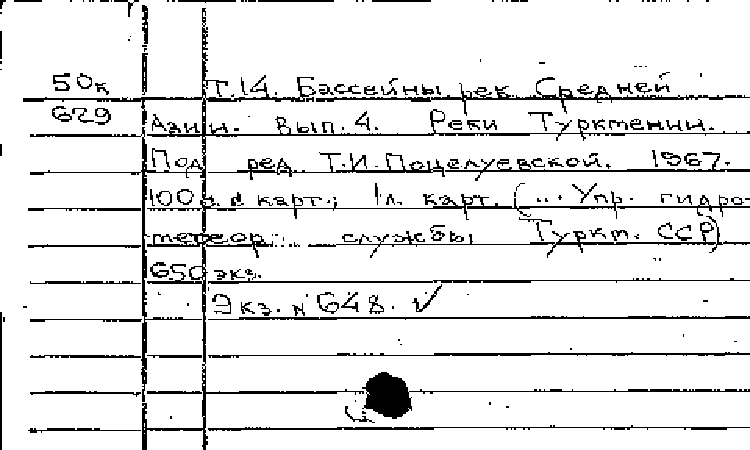 50к Т.14. Бассейны рек Средней
629 Азии. Вып. 4. Реки Туркмении.
Под ред. Т.И. Поцелуевской. 1967.
100 с. с карт.; 1 л. карт. (... Упр. гидро-
метеор. службы Туркм. ССР)
650 экз.
Экз. № 648. ✓